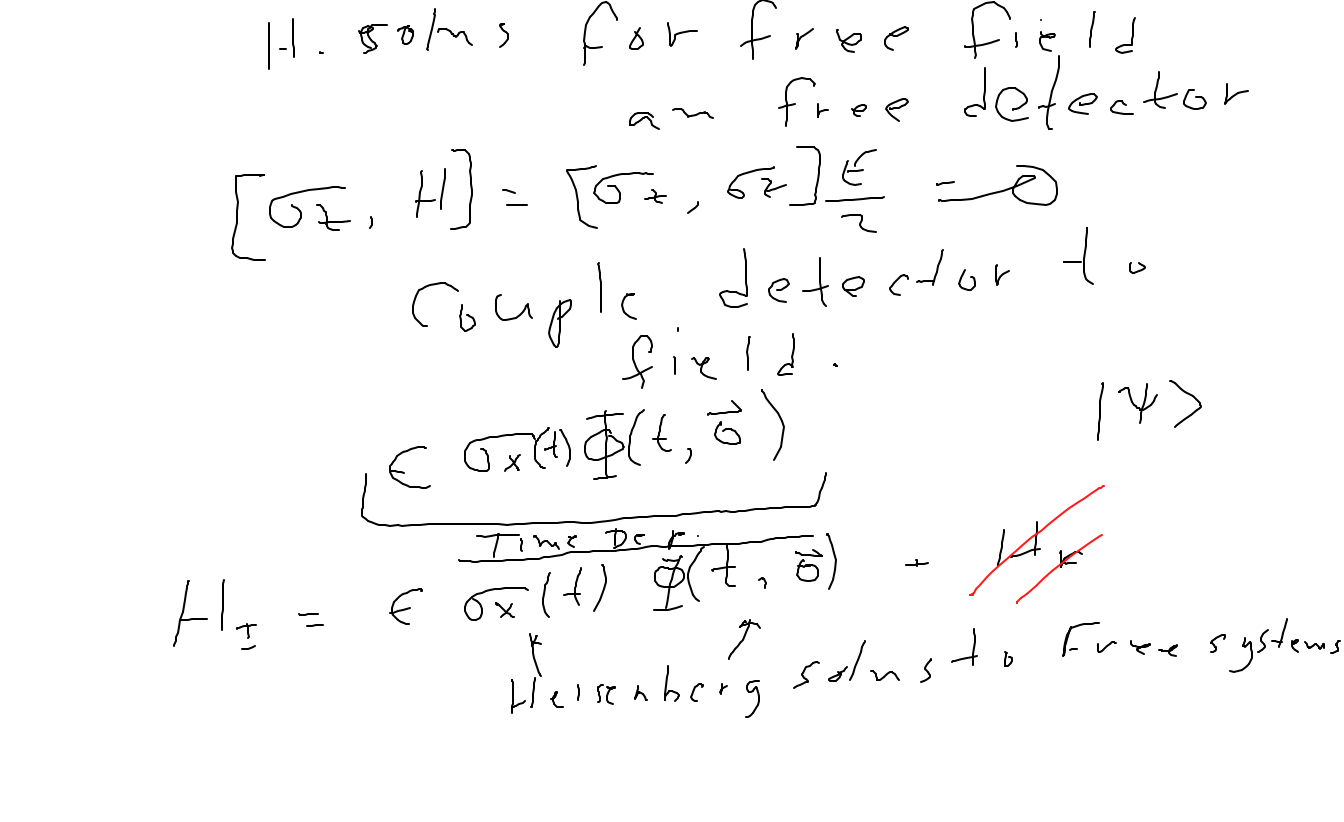 H. solns for free field
an free detector
[σz, H] = [σz, σz] E/2 = 0
Couple detector to
field.
|ψ>
ϵ σx(t) Φ(t, o⃗)
Time Der.
H_I = ϵ σx(t) Φ(t, o⃗) -
Heisenberg solns to Free systems